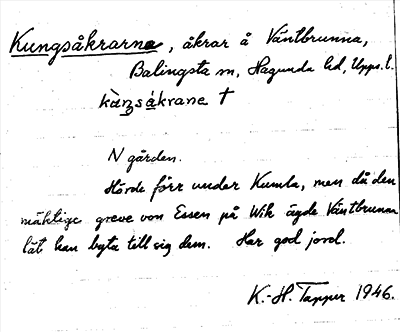 Kungsåkrarna, åkrar å Väntbrunna,
Balingsta sn, Hagunda hd, Upps. l.
kàŋsákrane †
N gården.
Hörde förr under Kumla, men då den
mäktige greve von Essen på Wik ägde Väntbrunna
lät han byta till sig dem. Har god jord.
K.-H. Tapper 1946.